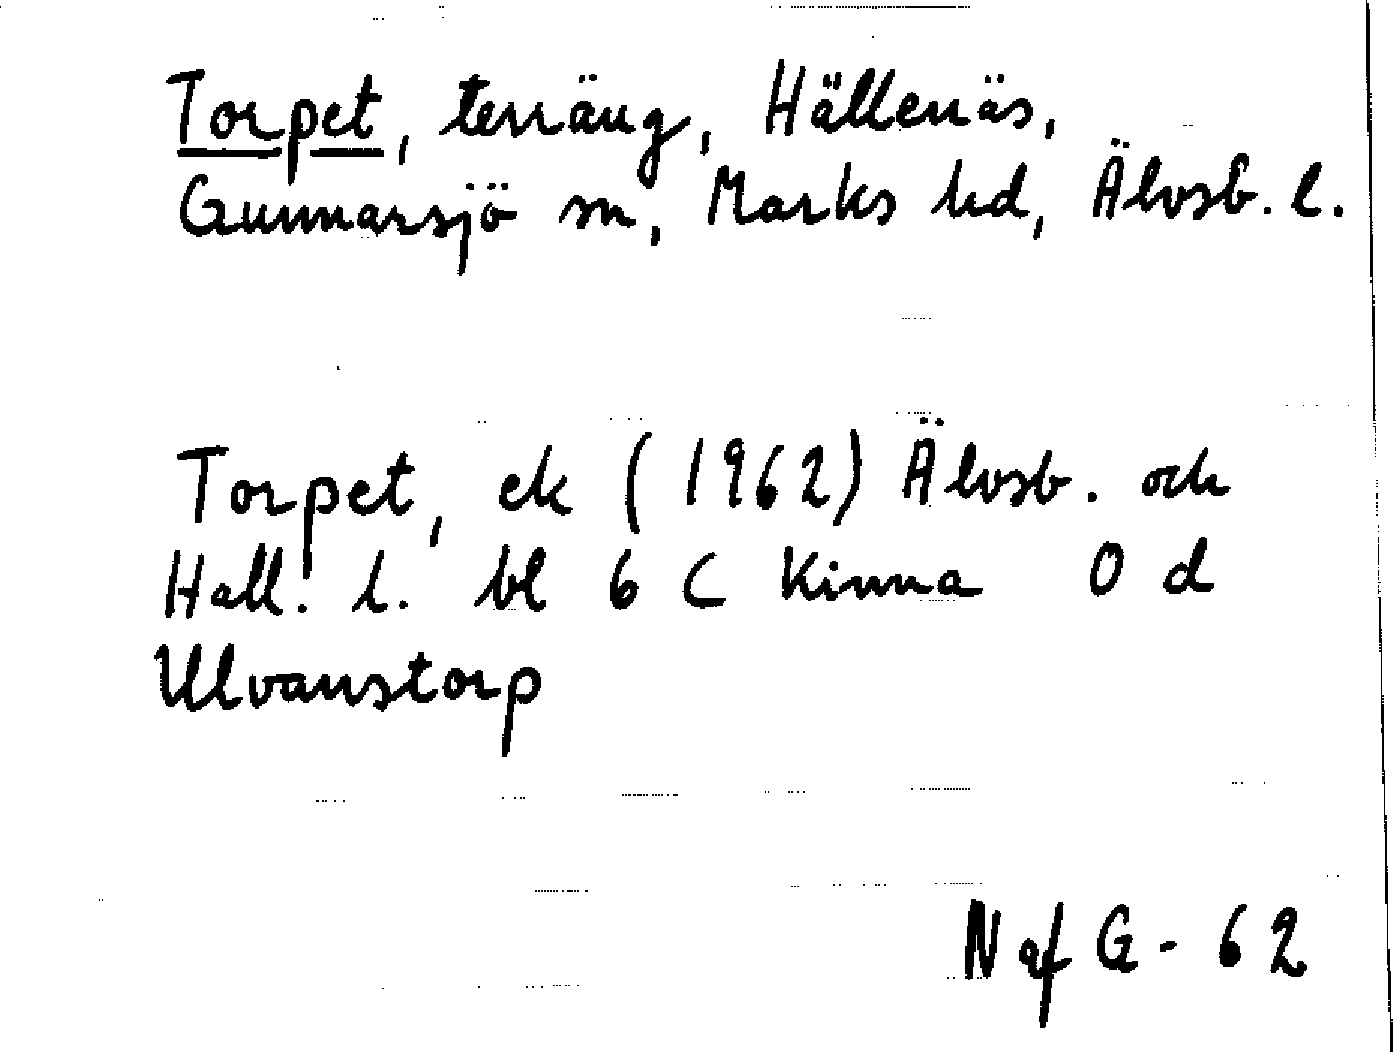 Torpet, terräng, Hällenäs,
Gunnarsjö sn, Marks hd, Älvsb. l.
Torpet, ek (1962) Älvsb. och
Hall. l. bl 6 C Kinna 0 d
Ulvanstorp
N af G - 62